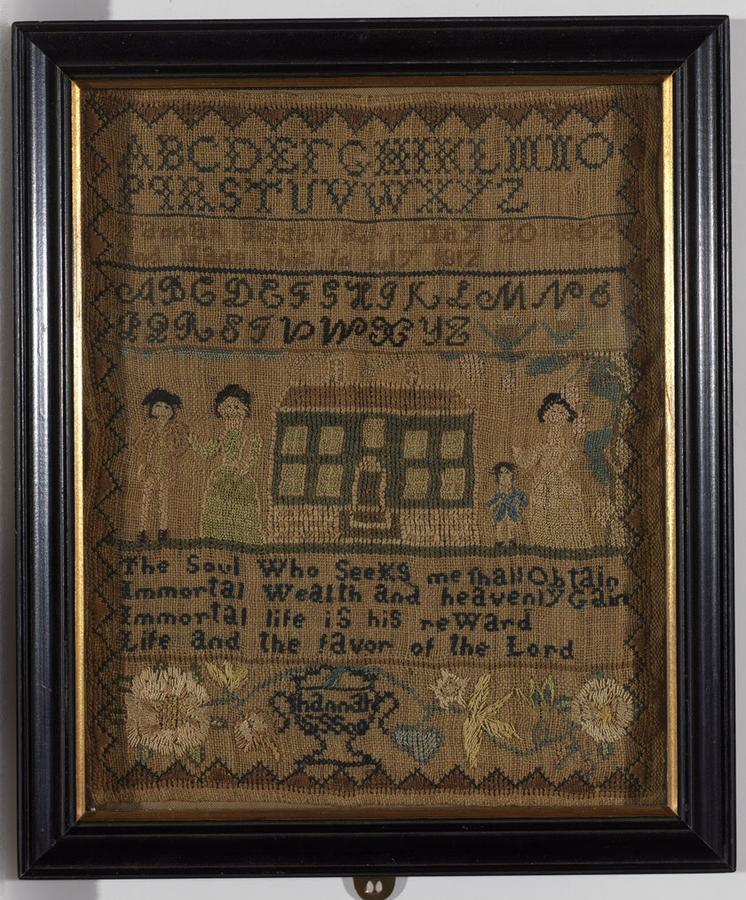 ABCDEFGHIKLMNO
PQRSTUVWXYZ
Hannah Sisson Born May 20 1802
And Made this in July 1812
ABCDEFGHIKLMNO
PQRSTVWXYZ
The Soul Who Seeks me shall Obtain
Immortal Wealth and heavenly Gain
Immortal life is his reWard
Life and the favor of the Lord
hannah